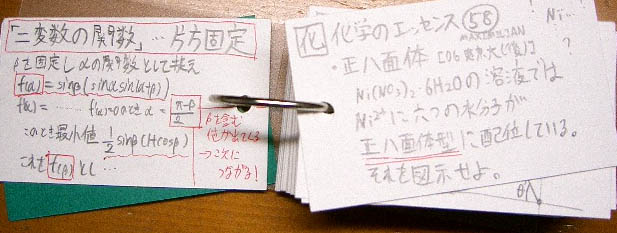 「二変数の関数」… 片方固定
βを固定しαの関数として捉え
f(α) = sinβ(sinα sin(α+β))
f(α) = …… f'(α)=0のときα = π-β/2
このとき最小値 1/2 sinβ(1+cosβ)
これをf(β)とし …
βを含む
値が出ている
→ここに
つながる!
化 化学のエッセンス 58
MAXIMILIAN
Ni… ?
・正八面体 [06 東京大(後)]
Ni(NO3)2・6H2Oの溶液では
Ni2+に六つの水分子が
正八面体型に配位している。
それを図示せよ。
θ